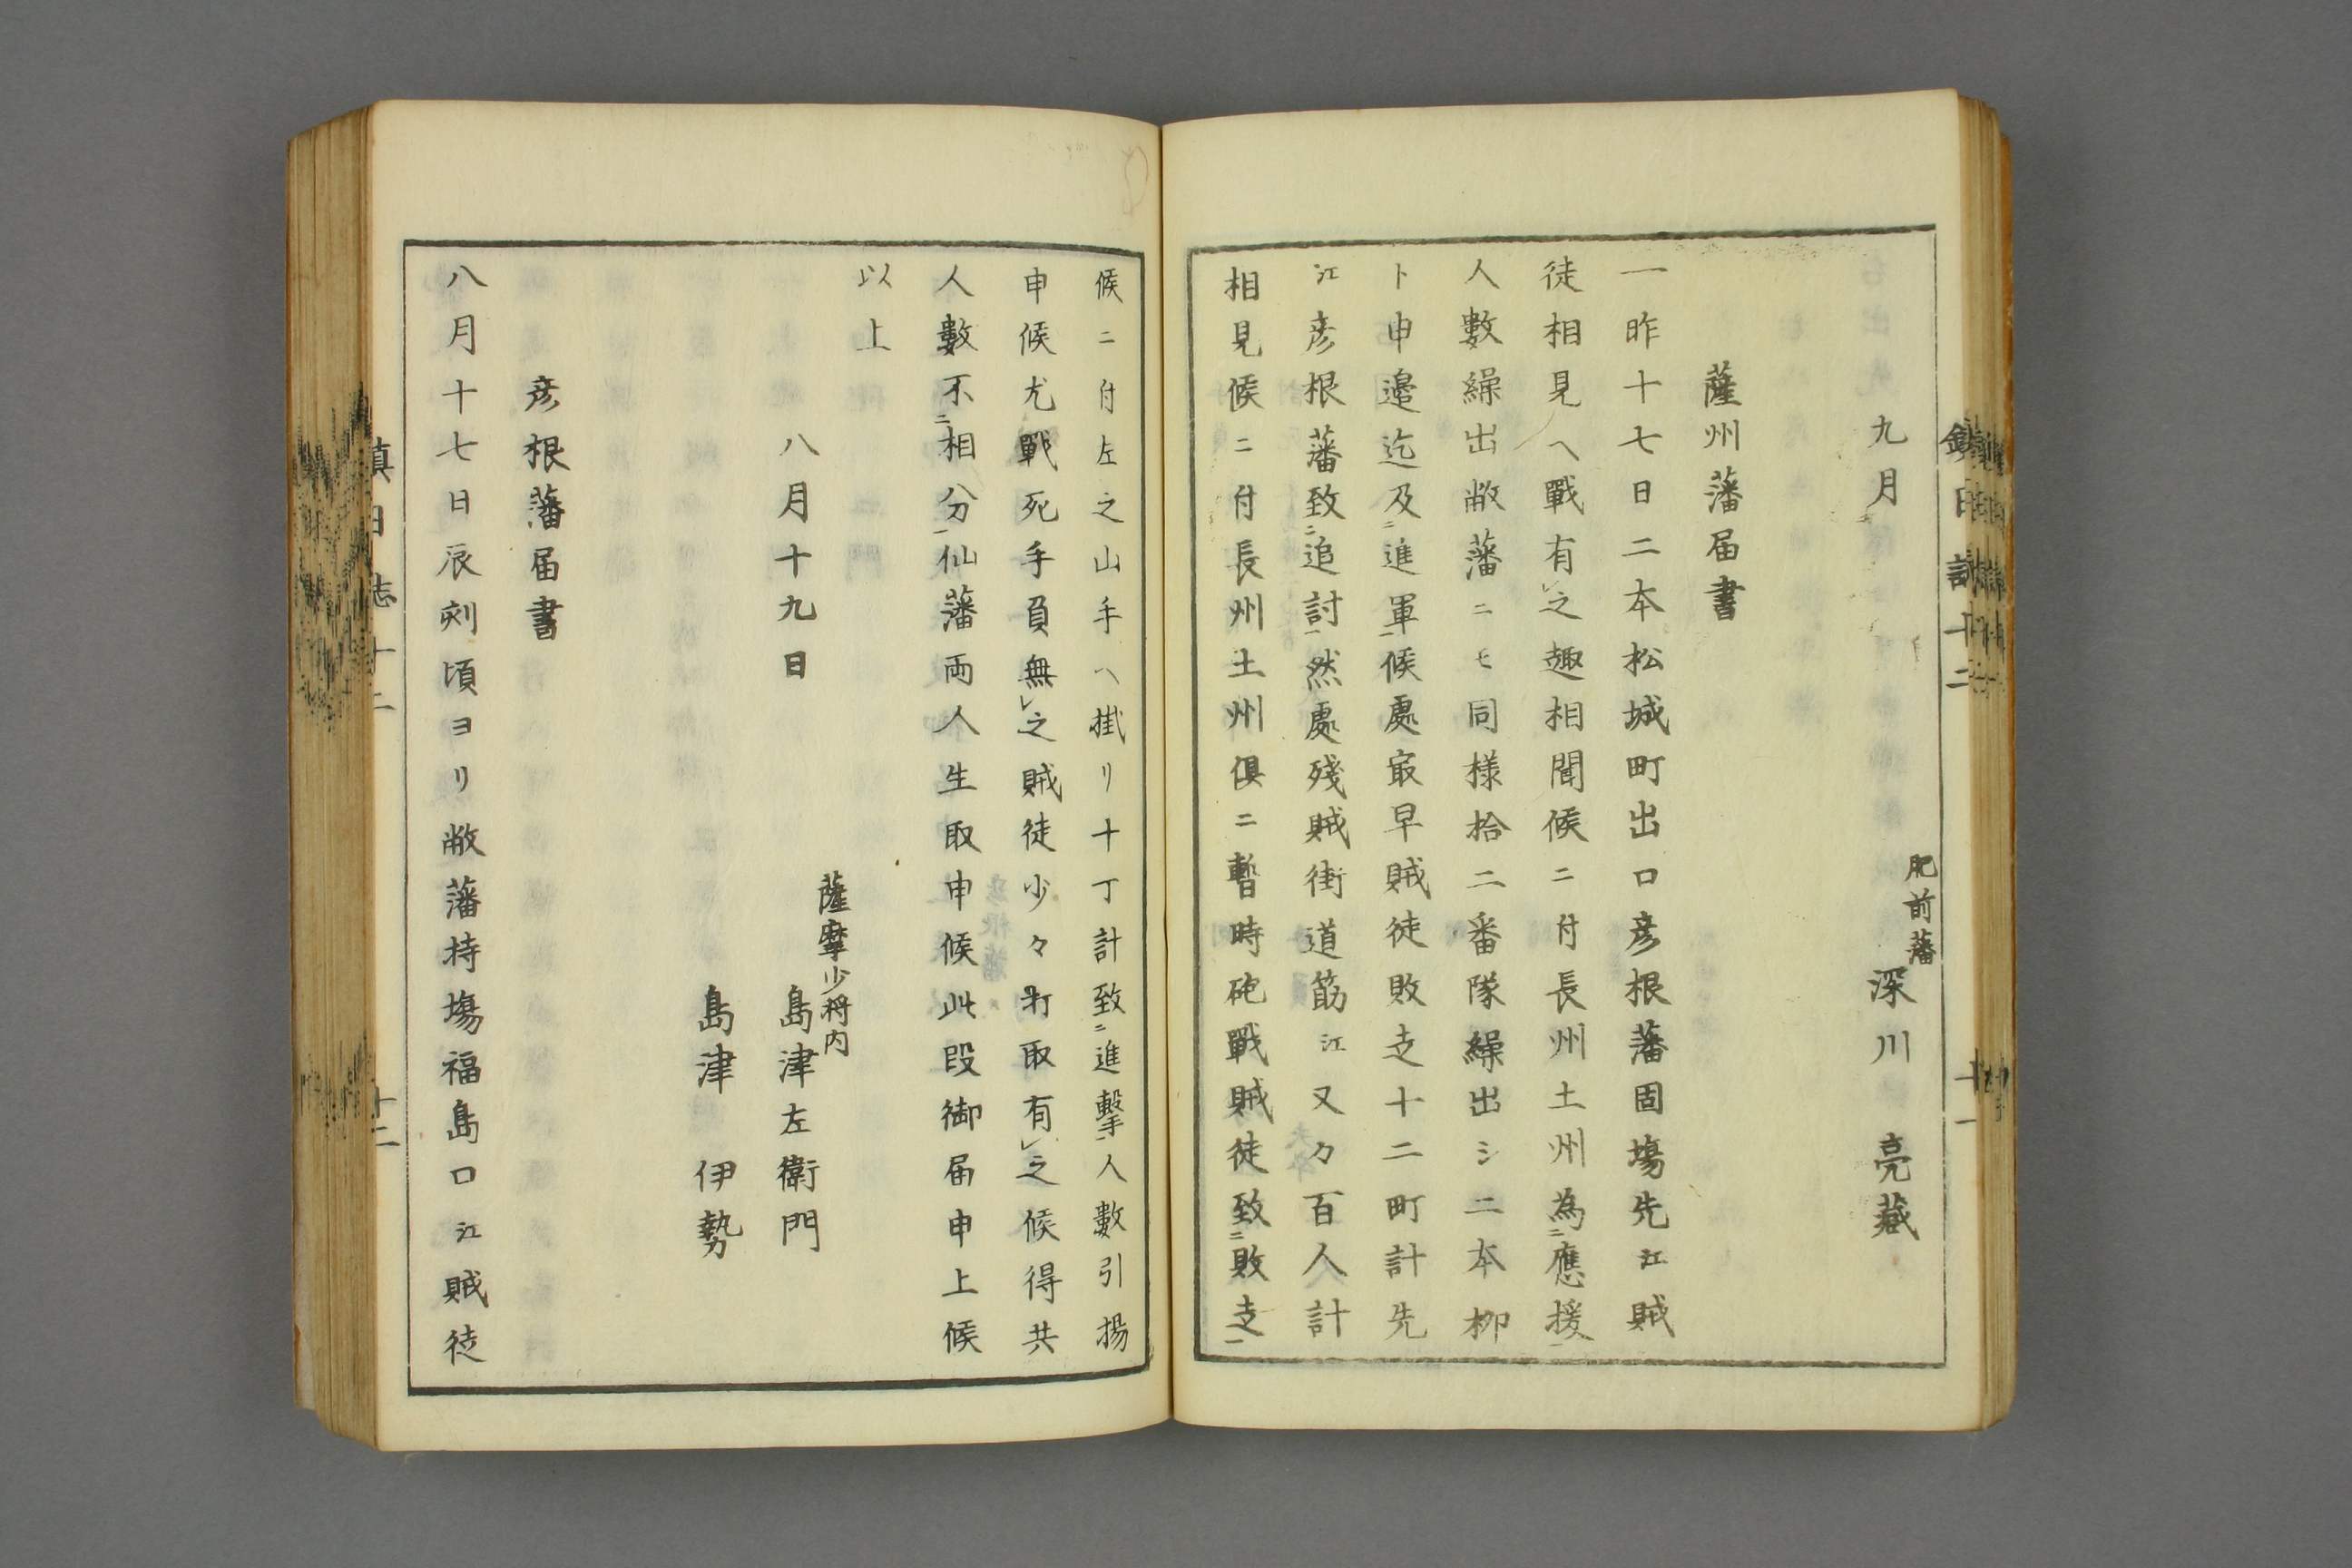 九月
肥前藩
深川亮藏
薩州藩届書
一昨十七日二本松城町出口彦根藩固場先江賊
徒相見ヘ戰有レ之趣相聞候ニ付長州土州為二應援一
人數繰出敝藩ニモ同樣拾二番隊繰出シ二本柳
ト申邉迄及二進軍一候處㝡早賊徒敗走十二町計先
江彦根藩致二追討一然處殘賊街道筋江又々百人計
相見候ニ付長州土州俱ニ暫時砲戰賊徒致二敗走一
候ニ付左之山手ヘ掛リ十丁計致二進擊一人數引揚
申候尤戰死手負無レ之賊徒少々打取有レ之候得共
人數不二相分一仙藩両人生取申候此段御届申上候
以上
八月十九日
薩摩少将内
島津左衛門
島津伊勢
彦根藩届書
八月十七日辰刻頃ヨリ敝藩持場福島口江賊徒